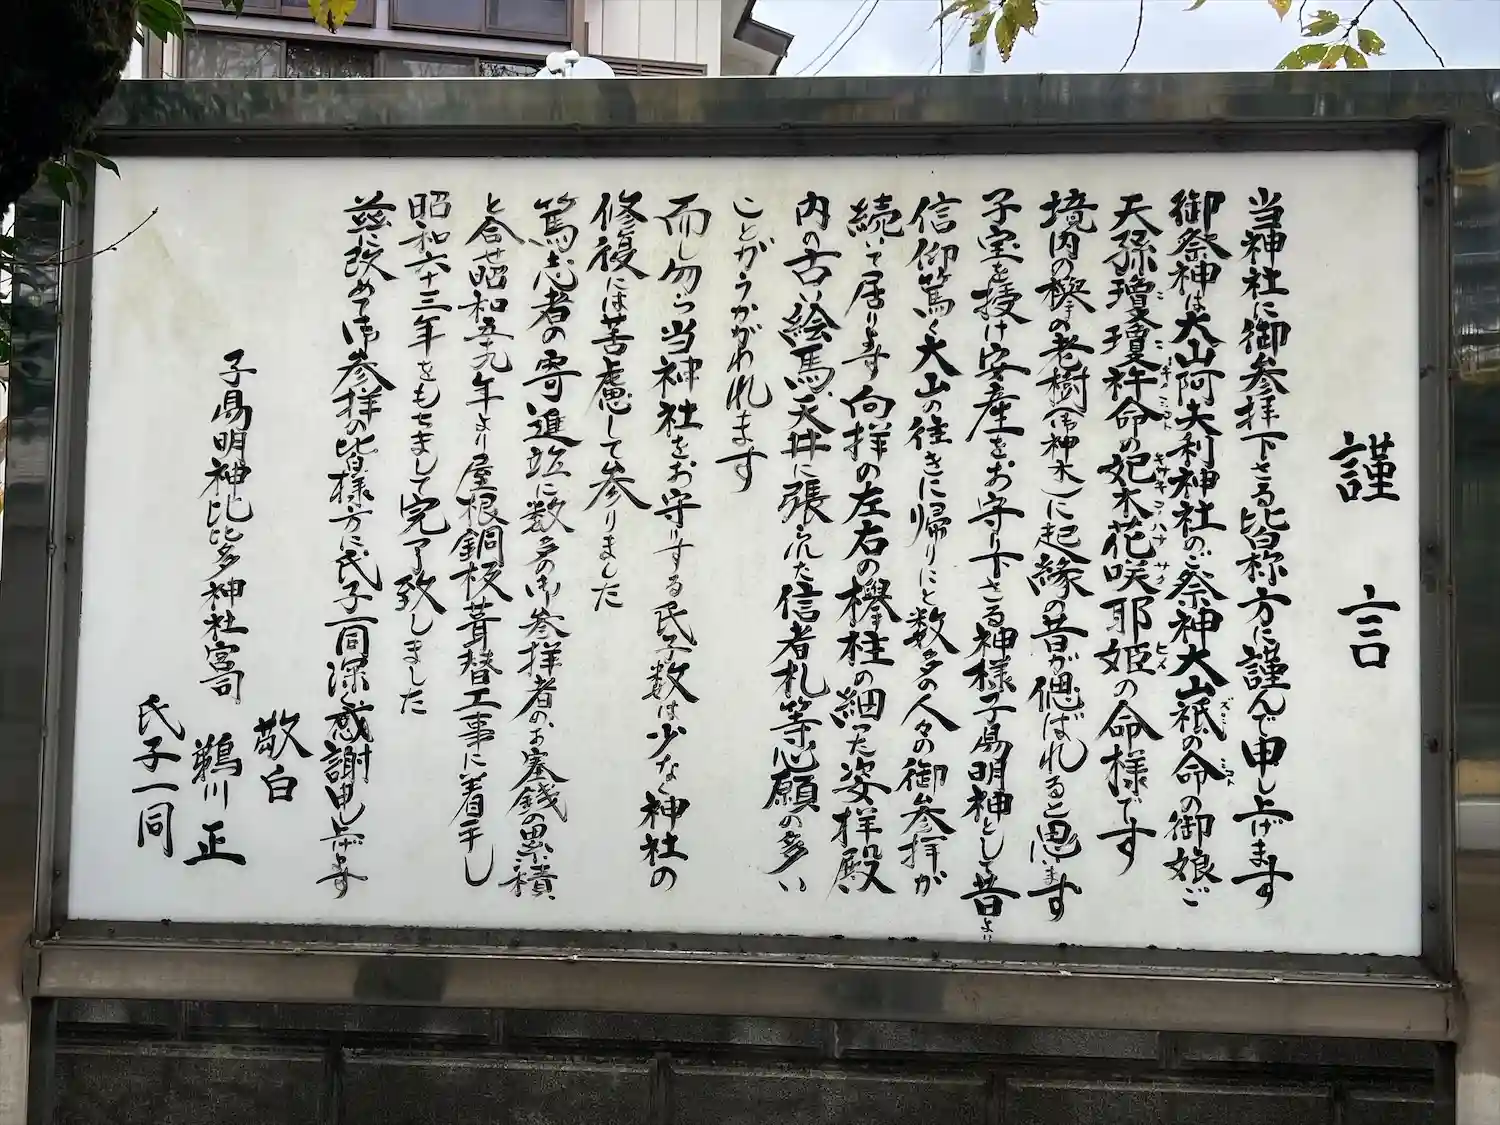 謹言
当神社に御参拝下さる皆称方に謹んで申し上げます
御祭神は大山阿夫利神社のご祭神大山祗の命の御娘ご
天孫瓊瓊杵命の妃木花咲耶姫の命様です
境内の欅の老樹(御神木)に起縁の昔が偲ばれると思います
子宝を授け安産をお守り下さる神様子易明神として昔より
信仰篤く大山の往きに帰りにと数多の人々の御参拝が
続いて居ります向拝の左右の欅柱の細った姿拝殿
内の古い絵馬、天井に張られた信者札等心願の多い
ことがうかがわれます
而し勿ら当神社をお守りする氏子数は少なく神社の
修復には苦慮して参りました
篤志者の寄進並に数多の御参拝者のお塞銭の累積
と合せ昭和五九年より屋根銅板葺替工事に着手し
昭和六十三年をもちまして完了致しました
茲に改めて御参拝の皆様方に氏子一同深く感謝申し上げます
敬白
子易明神比比多神社宮司 鵜川正
氏子一同